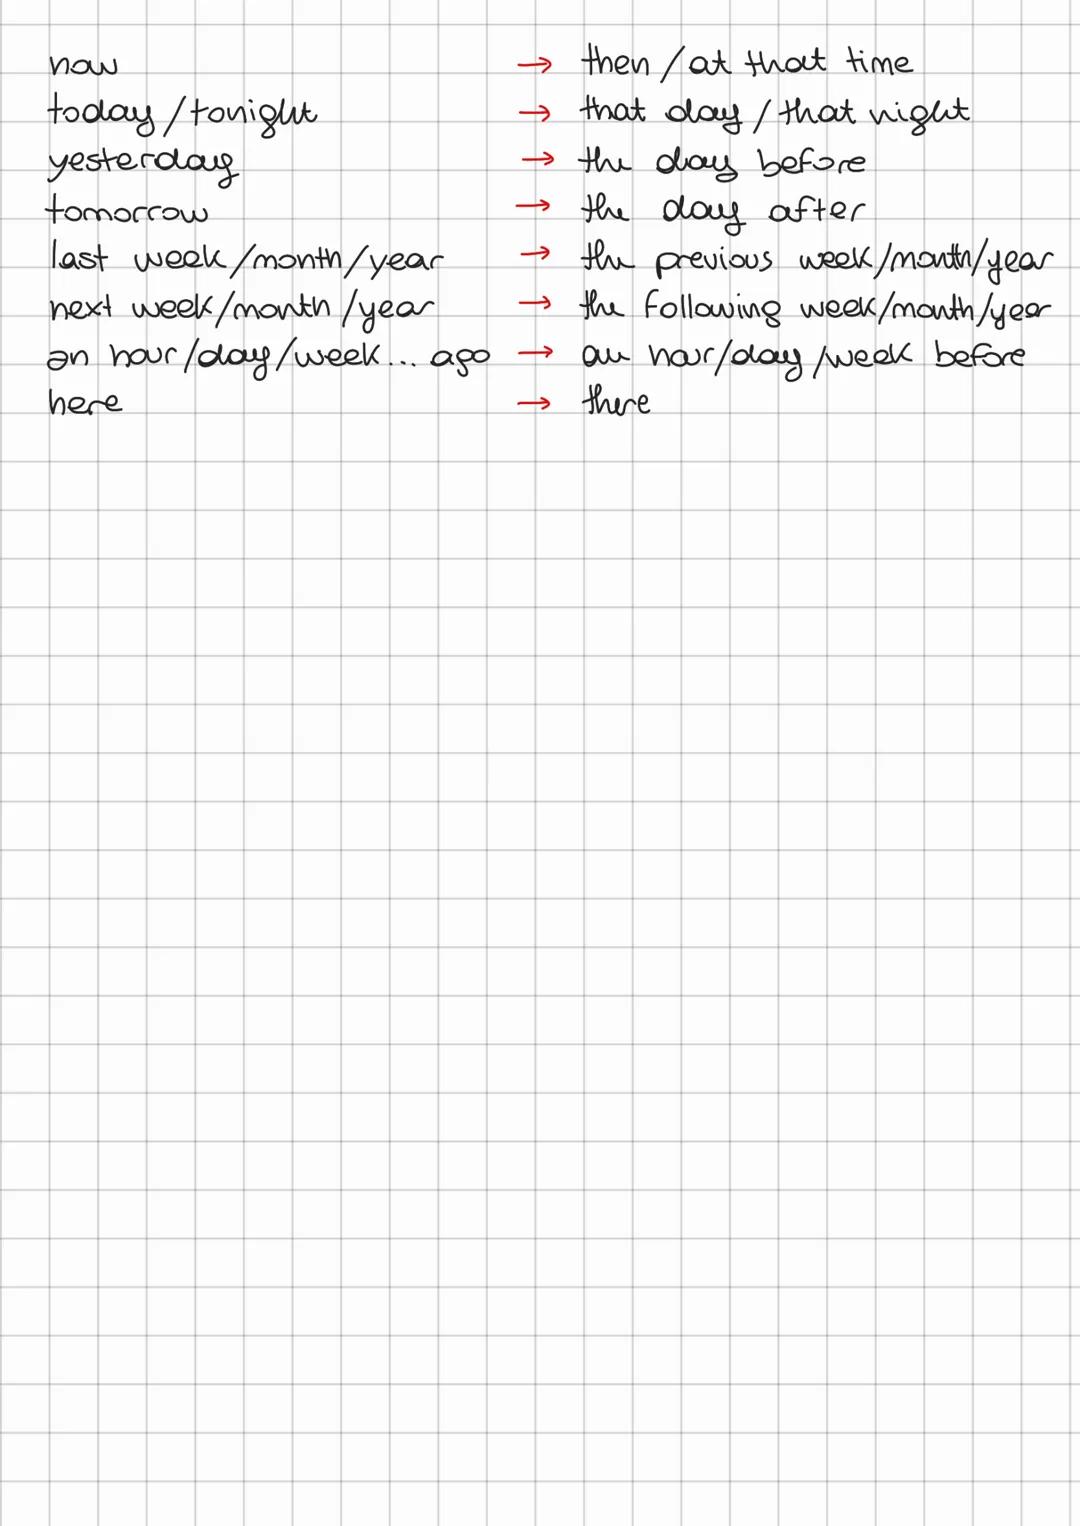 now → then / at that time
today / tonight → that day / that night
yesterday → the day before
tomorrow → the day after
last week/month/year → the previous week/month/year
next week/month/year → the following week/month/year
an hour/day/week... ago → an hour/day/week before
here → there